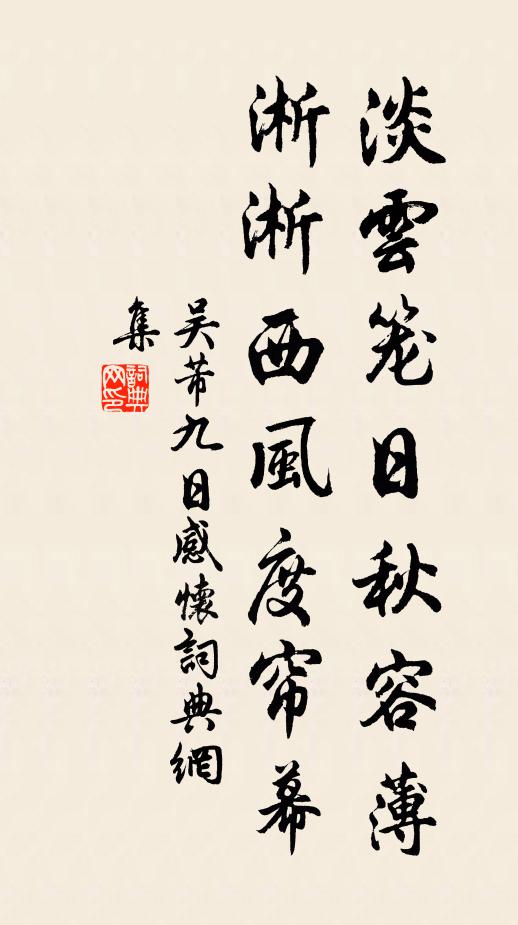 淡雲笼日秋容薄
淅淅西風度帘幕
吴芾九日感懷詞典網
集
詞典
网印